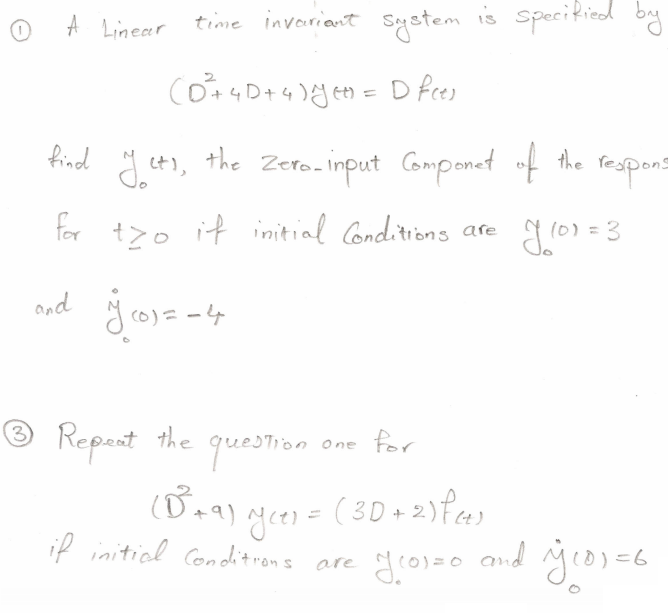 ① A Linear time invariant system is specified by
(D² + 4D + 4) y(t) = D f(t)
find y₀(t), the Zero-input Componet of the respons
for t ≥ 0 if initial Conditions are y₀(0) = 3
and ẏ₀(0) = -4
③ Repeat the question one for
(D² + 9) y(t) = (3D + 2) f(t)
if initial Conditions are y₀(0) = 0 and ẏ₀(0) = 6